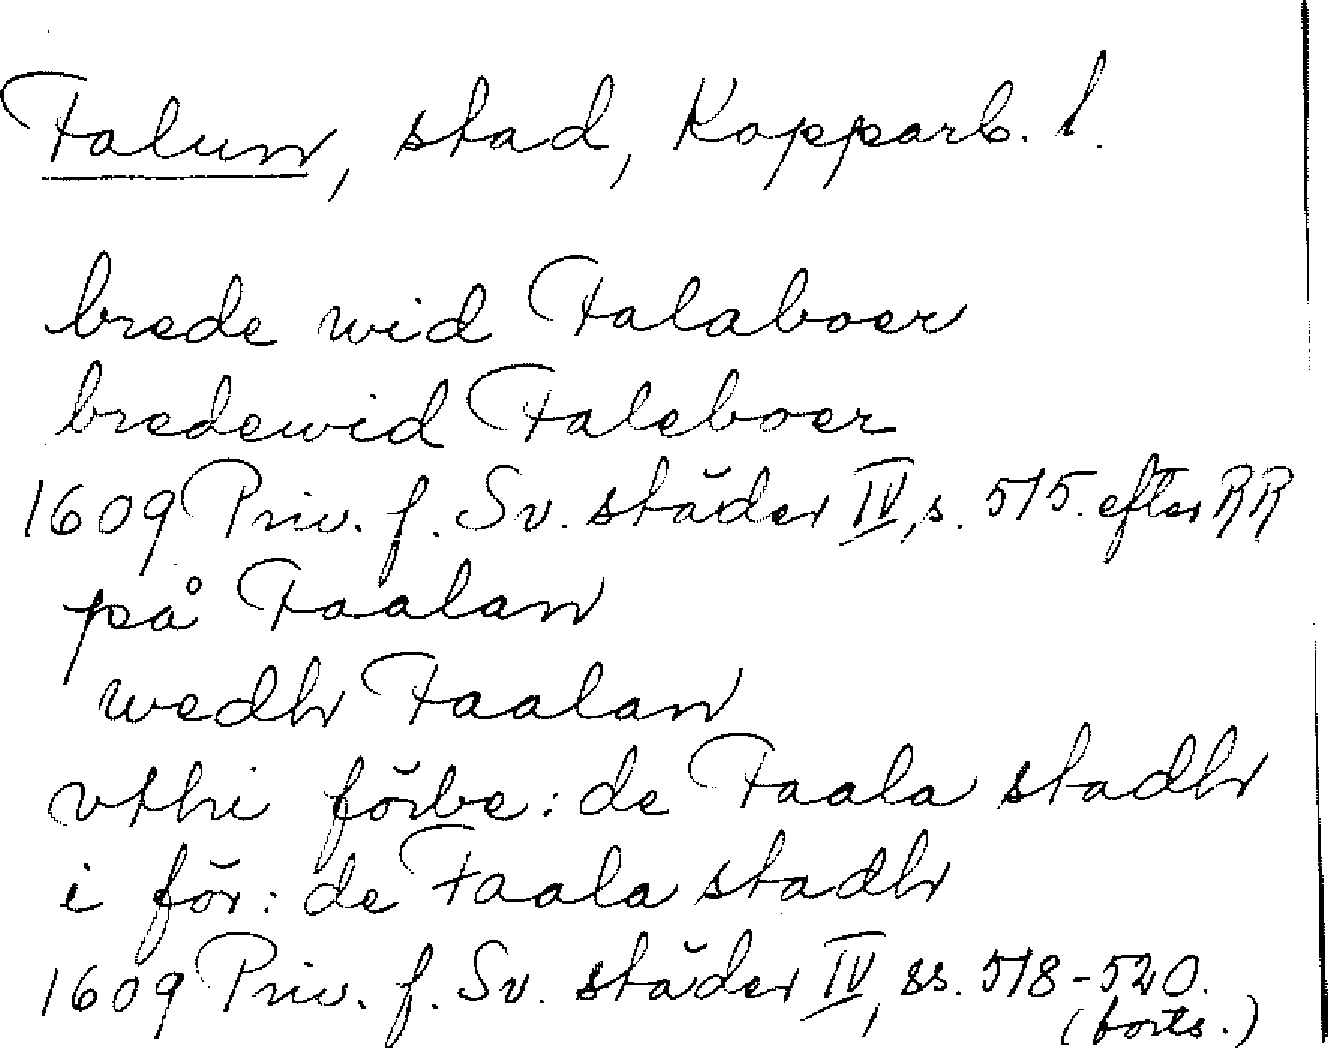 Falun, stad, Kopparb. l.
brede wid Falaboer
bredewid Faleboer
1609 Priv. f. Sv. städer IV, s. 515. efter RR
på Faalan
wedh Faalan
vthi förbe: de Faala stadh
iför: de Faala stadh
1609 Priv. f. Sv. städer IV, ss. 518-520.
(forts.)